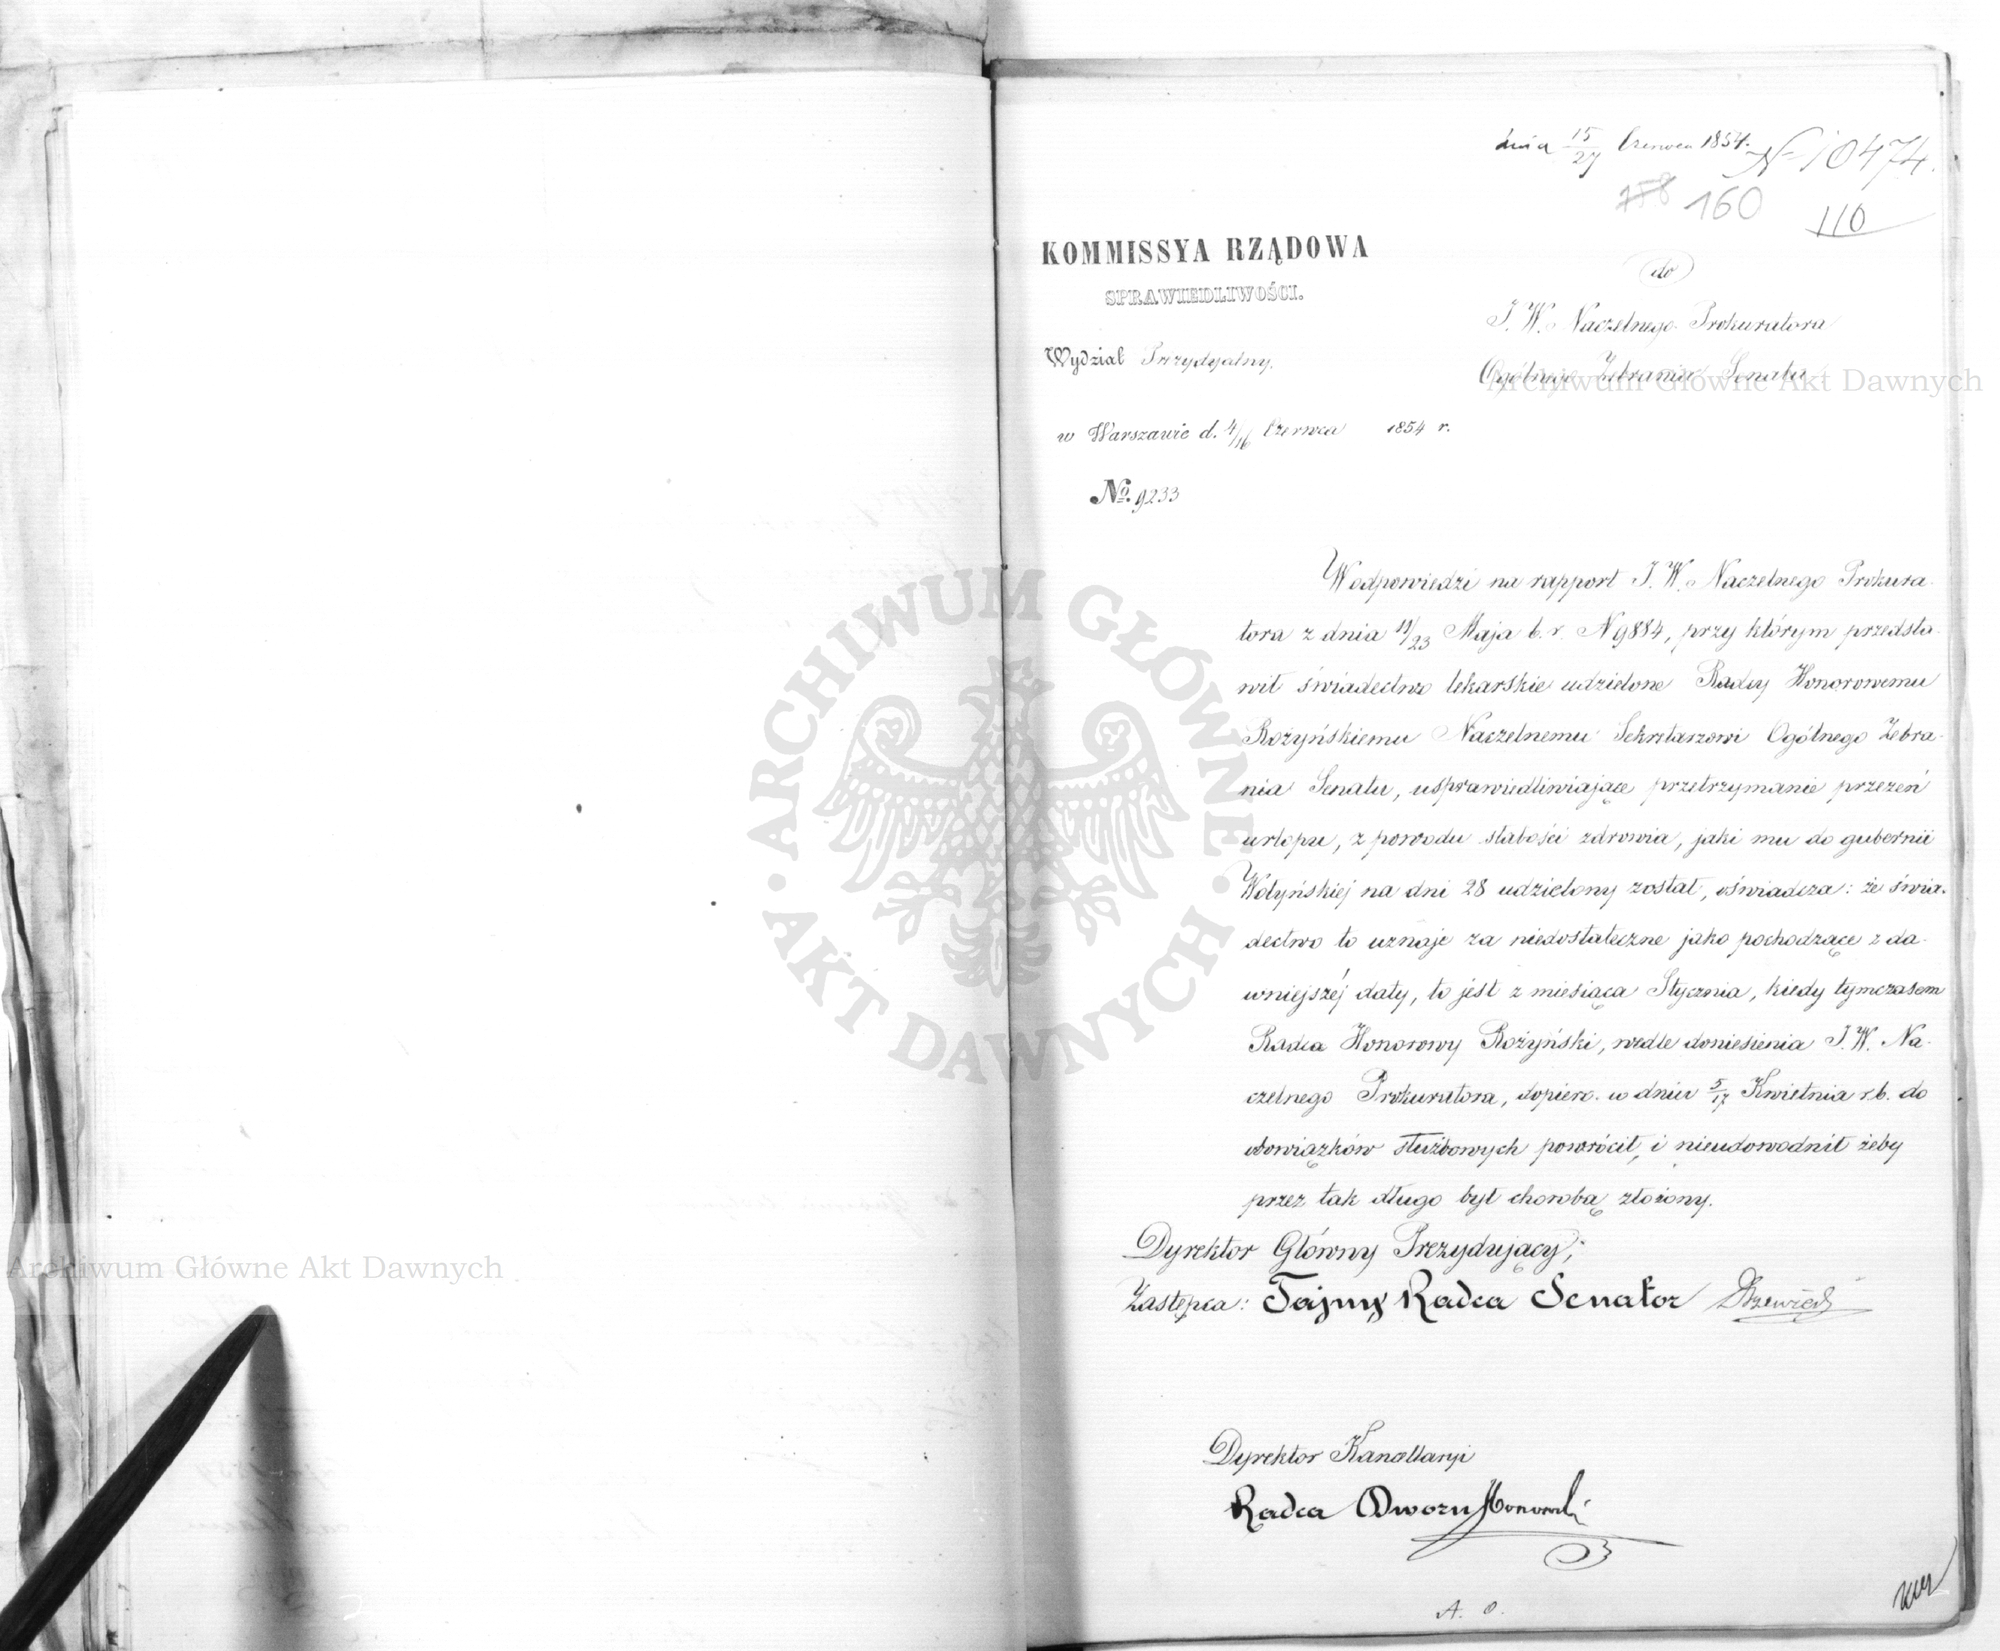 dnia 15/27 Czerwca 1854. N 10474.
158 160 110
KOMMISSYA RZĄDOWA
SPRAWIEDLIWOŚCI.
do
J. W. Naczelnego Prokuratora
Ogólnego Zebrania Senatu
Wydział Prezydyalny.
w Warszawie d. 4/16 Czerwca 1854 r.
No. 9233
W odpowiedzi na rapport J. W. Naczelnego Prokura-
tora z dnia 11/23 Maja b. r. N 9884, przy którym przedsta-
wił świadectwo lekarskie udzielone Radcy Honorowemu
Rożyńskiemu Naczelnemu Sekretarzowi Ogólnego Zebra-
nia Senatu, usprawiedliwiające przetrzymanie przezeń
urlopu, z powodu słabości zdrowia, jaki mu do gubernii
Wołyńskiej na dni 28 udzielony został, oświadcza: że świa-
dectwo to uznaje za niedostateczne jako pochodzące z da-
wniejszéj daty, to jest z miesiąca Stycznia, kiedy tymczasem
Radca Honorowy Rożyński, wedle doniesienia J. W. Na-
czelnego Prokuratora, dopiero w dniu 5/17 Kwietnia r.b. do
obowiązków służbowych powrócił, i nieudowodnił żeby
przez tak długo był chorobą złożony.
Dyrektor Główny Prezydujący,
Zastępca: Tajny Radca Senator
Dyrektor Kancellaryi
Radca Dworu
A. O.
Archiwum Główne Akt Dawnych
Archiwum Główne Akt Dawnych
ARCHIWUM GŁÓWNE AKT DAWNYCH